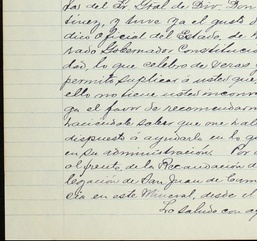 das del Sr. Gral de Div. Don
tinez, y tuve ya el gusto d
dico Oficial del Estado, de h
rado Gobernador Constitucio
dad, lo que celebro de veras y
permito suplicar á usted que,
ello no tiene usted inconv
ga el favor de recomendarm
haciéndole saber que me hal
dispuesto á ayudarlo en lo q
en su administración. Por
al frente, de la Recaudación d
legación de San Juan de
día en este Mineral, desde el
Lo saludo con a